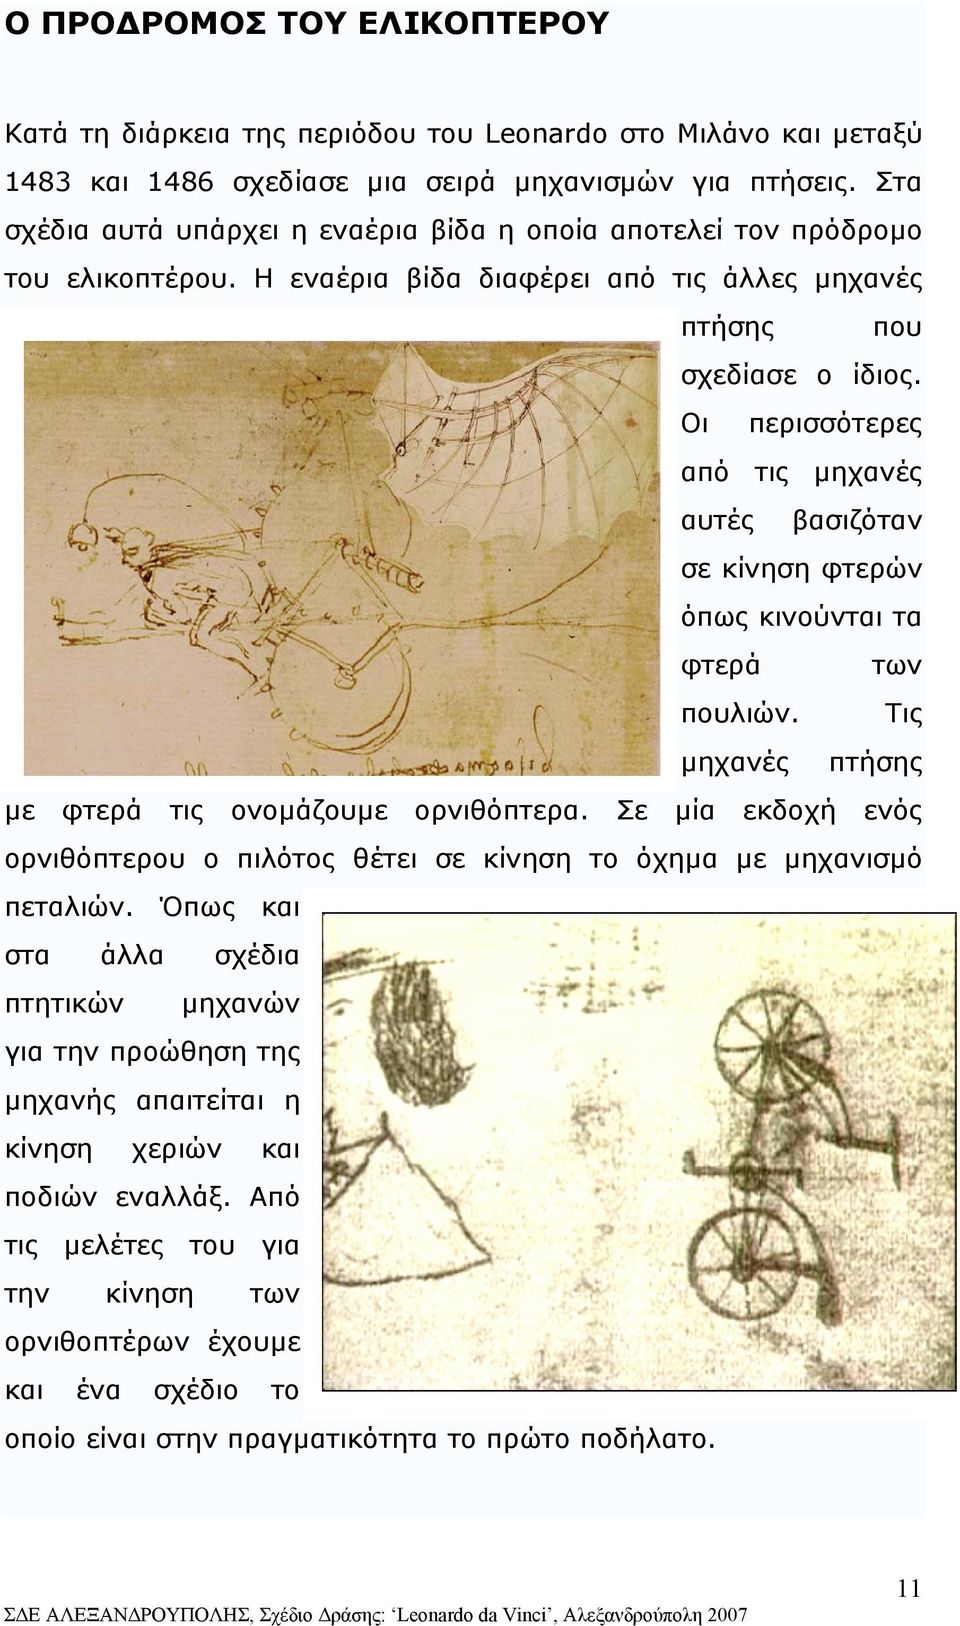 Ο ΠΡΟΔΡΟΜΟΣ ΤΟΥ ΕΛΙΚΟΠΤΕΡΟΥ
Κατά τη διάρκεια της περιόδου του Leonardo στο Μιλάνο και μεταξύ
1483 και 1486 σχεδίασε μια σειρά μηχανισμών για πτήσεις. Στα
σχέδια αυτά υπάρχει η εναέρια βίδα η οποία αποτελεί τον πρόδρομο
του ελικοπτέρου. Η εναέρια βίδα διαφέρει από τις άλλες μηχανές
πτήσης που
σχεδίασε ο ίδιος.
Οι περισσότερες
από τις μηχανές
αυτές βασιζόταν
σε κίνηση φτερών
όπως κινούνται τα
φτερά των
πουλιών. Τις
μηχανές πτήσης
με φτερά τις ονομάζουμε ορνιθόπτερα. Σε μία εκδοχή ενός
ορνιθόπτερου ο πιλότος θέτει σε κίνηση το όχημα με μηχανισμό
πεταλιών. Όπως και
στα άλλα σχέδια
πτητικών μηχανών
για την προώθηση της
μηχανής απαιτείται η
κίνηση χεριών και
ποδιών εναλλάξ. Από
τις μελέτες του για
την κίνηση των
ορνιθοπτέρων έχουμε
και ένα σχέδιο το
οποίο είναι στην πραγματικότητα το πρώτο ποδήλατο.
11
ΣΔΕ ΑΛΕΞΑΝΔΡΟΥΠΟΛΗΣ, Σχέδιο Δράσης: ‘Leonardo da Vinci’, Αλεξανδρούπολη 2007